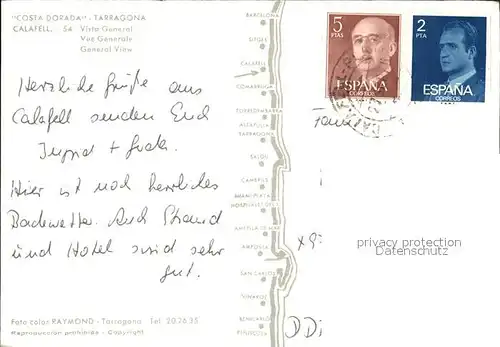 "COSTA DORADA" - TARRAGONA
CALAFELL. 54 Vista General
Vue Générale
General View
Herzliche Grüße aus
Calafell senden Euch
Ingrid +
Hier ist noch herrliches
Badewetter. Auch Strand
und Hotel sind sehr
gut.
Foto color RAYMOND - Tarragona Tel. 20.26.35
Reproducción prohibida - Copyright
BARCELONA
SITGES
CALAFELL
COMARRUGA
TORREDEMBARRA
ALTAFULLA
TARRAGONA
SALOU
CAMBRILS
MIAMI PLAYA
HOSPITALET DEL I.
AMETLLA DE MAR
AMPOSTA
SAN CARLOS
VINAROZ
BENICARLO
PEÑISCOLA
5
PTAS
ESPAÑA
CORREOS
2
PTA
ESPAÑA
CORREOS
privacy protection
www.oldthing.de